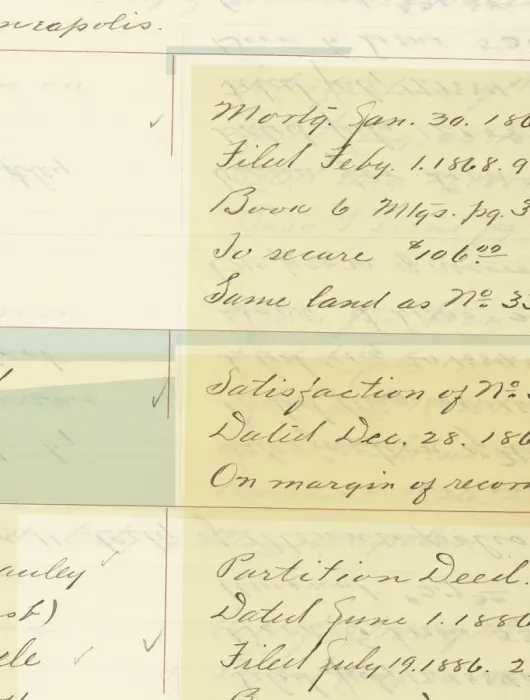 neapolis.
Mortg. Jan. 30. 186
Filed Feby. 1. 1868. 9
Book 6 Mtgs. pg. 3
To secure $106.00
Same land as No. 33
Satisfaction of No.
Dated Dec. 28. 186
On margin of recor
auley Partition Deed.
Dated June 1. 1886
Filed July 19. 1886. 2